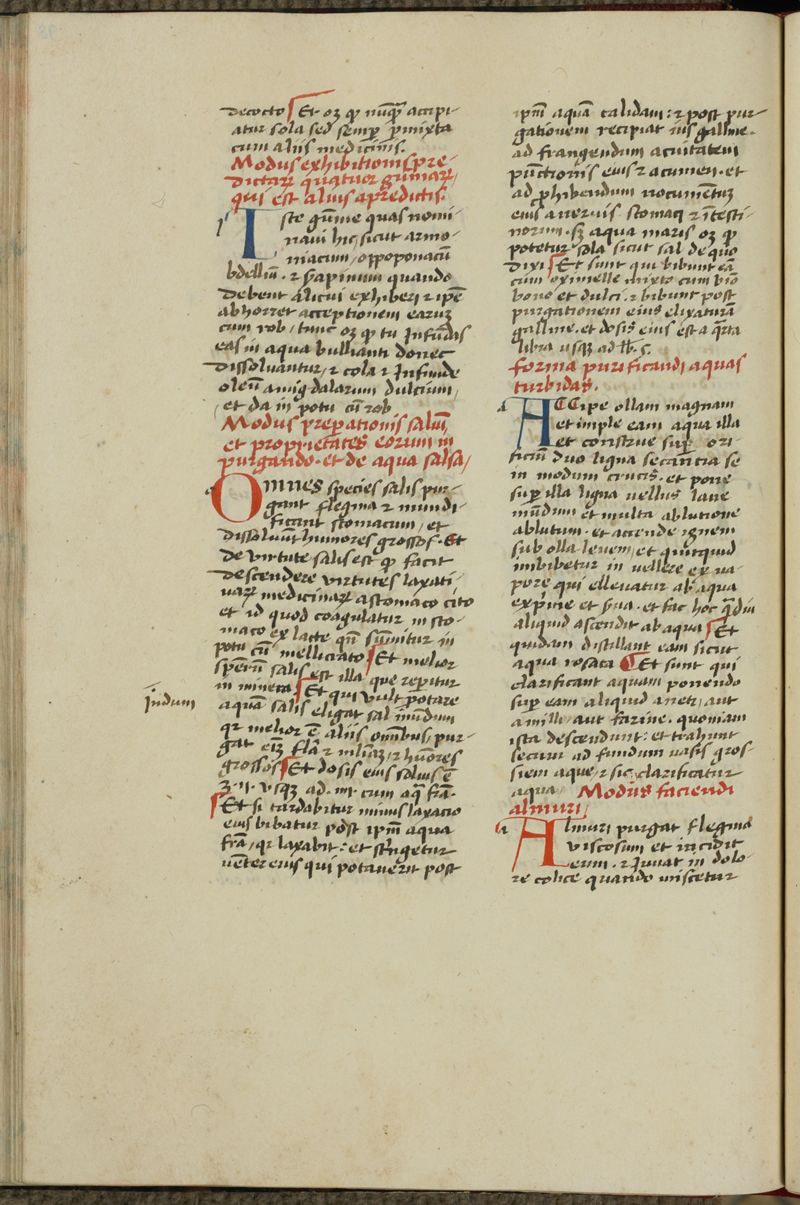 decocto Et oꝫ ꝙ nūꝗ̃ accipi-
atur sola sed semꝑ ꝑmixta
cum aliis medicinis.
Modus exhibitionis pre-
dictaꝝ quatuor gūmaꝝ/
qui est alius a predictis.
i Iste gūme quas nomi
naui hic/ sicut armo-
niacum/ oppoponacū
bdelliū. ⁊ serapinum quando
debent alicui exhiberi ⁊ ip̄e
abhorret acceptionem earuꝫ
cum rob/ tunc oꝫ ꝙ tu infūdas
eas in aqua bullianti donec
dissoluantur/ ⁊ cola ⁊ infunde
oleū amigdalarum dulcium/
et da in potu cū rob
Modus preꝑationis saliū,
et proprietates eorum in
purgando. et de aqua salsa/
o Omnes species salis pur-
gant flegma ⁊ mundi-
ficant stomacum/ et
dissoluūt humores grossos. Et
de virtute salis est ꝙ facit
descendere virtutes laxati-
uaꝝ medicinaꝝ a stomaco cito
et id quod coagulatur in sto-
maco ex lacte qn̄ sūmitur in
potu cū mellicrato Et melior
speciērū salis est illa que reperitur
in minera Et qui vult potare
aquā salis eligat sal inūdum
Indum
qr melior ē aliis omnibus/ pur-
gat eī flā ⁊ /⁊ hūores
grossos Et dosis eius solius ē
ʒ ·ii· vsqꝫ ad ·iii· cum aq̄ frā.
Et si tardabitur minus laxacio
eius bibatur post ip̄m aqua
frā/ qr laxabit: et strīgetur
uenter eius qui potauerit post
ip̄m aquā calidam: ⁊ post pur-
gationem recipiat ius galline.
ad frangendum acuitatem
pūctionis eius ⁊ acumen. et
ad ꝓhibendum nocumentuꝫ
eius a neruis stomaci ⁊ ītesti-
norum. sꝫ aqua maris oꝫ ꝙ
potetur sola sicut sal de quo
dixi Et sunt qui bibunt eā
cum oximelle mixto cum vīo
bono et dulci. ⁊ bibunt post
purgationem eius elixaturā
galline. et dosis eius est a q̄rta
libra usqꝫ ad lb̄. ſ.
forma purificandi aquas
turbidas.
a ACCipe ollam magnam
et imple eam aqua illa
et construe suꝑ ori-
ficiū duo ligna secantia se
in modum crucis. et pone
suꝑ illa ligna uellus lane
mūdum et multa ablutione
ablutum. et accende ignem
sub olla leuem/ et quicquid
imbibetur in vellere ex va-
pore qui elleuatur ab aqua
exprime et s̄ua. et fac hoc q̄diu
aliquid ascendit ab aqua Et
quidam distillant eam sicut
aqua rosata Et sunt qui
clarificant aquam ponendo
suꝑ eam aliquid aneti/ aut
amilli/ aut farine. quoniam
ista descendunt: et trahunt
secum ad fundum uasis gros
siem aque/ ⁊ sic clarificatur
aqua Modus faciendi
almuri/
a Almuri purgat flegma
viscosum et incidit
eum. ⁊ iuuat in dolo-
re colice quando miscetur